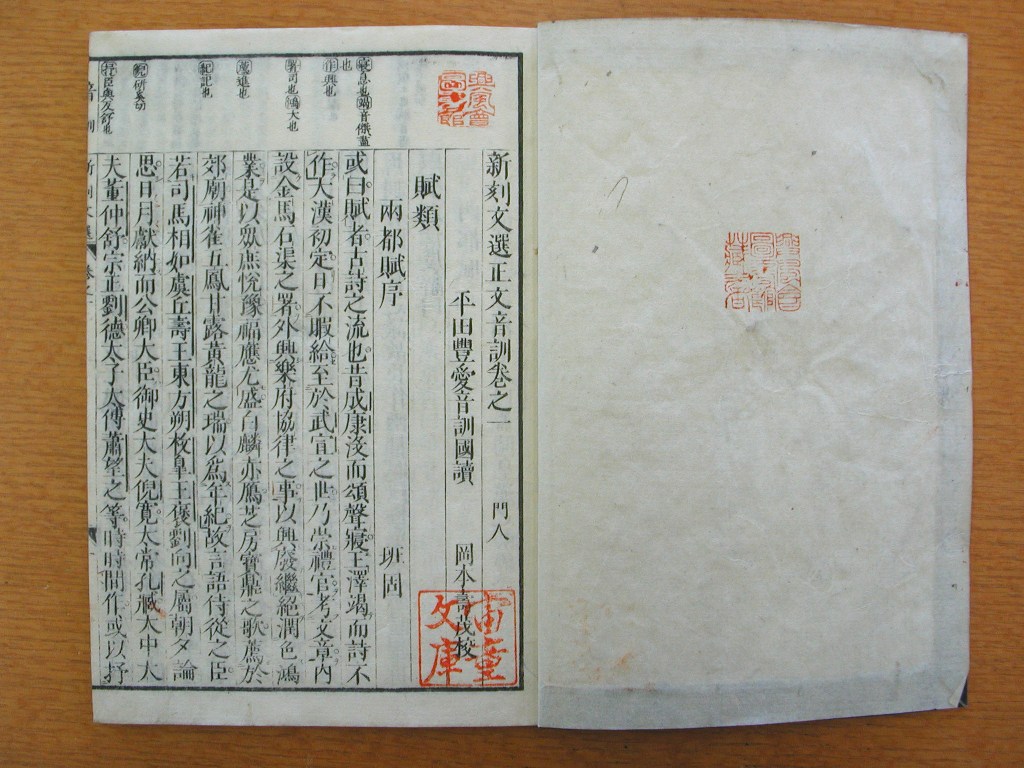 寢息也竭音傑盡
也
作興也
署司也鴻大也
薦進也
紀記也
倪研奚切
新刻文選正文音訓卷之一
門人
平田豐愛音訓國讀 岡本 茂校
賦類
兩都賦序 班固
或曰賦者古詩之流也昔成康沒而頌聲寢王澤竭而詩不
作大漢初定日不暇給至於武宣之世乃崇禮官考文章內
設金馬石渠之署外興樂府協律之事以興廢繼絕潤色鴻
業是以眾庶悅豫福應尤盛白麟赤鴈芝房寶鼎之歌薦於
郊廟神雀五鳳甘露黃龍之瑞以爲年紀故言語侍從之臣
若司馬相如虞丘壽王東方朔枚皐王褒劉向之屬朝夕論
思日月獻納而公卿大臣御史大夫倪寬太常孔臧太中大
夫董仲舒宗正劉德太子太傅蕭望之等時時間作或以抒
文庫